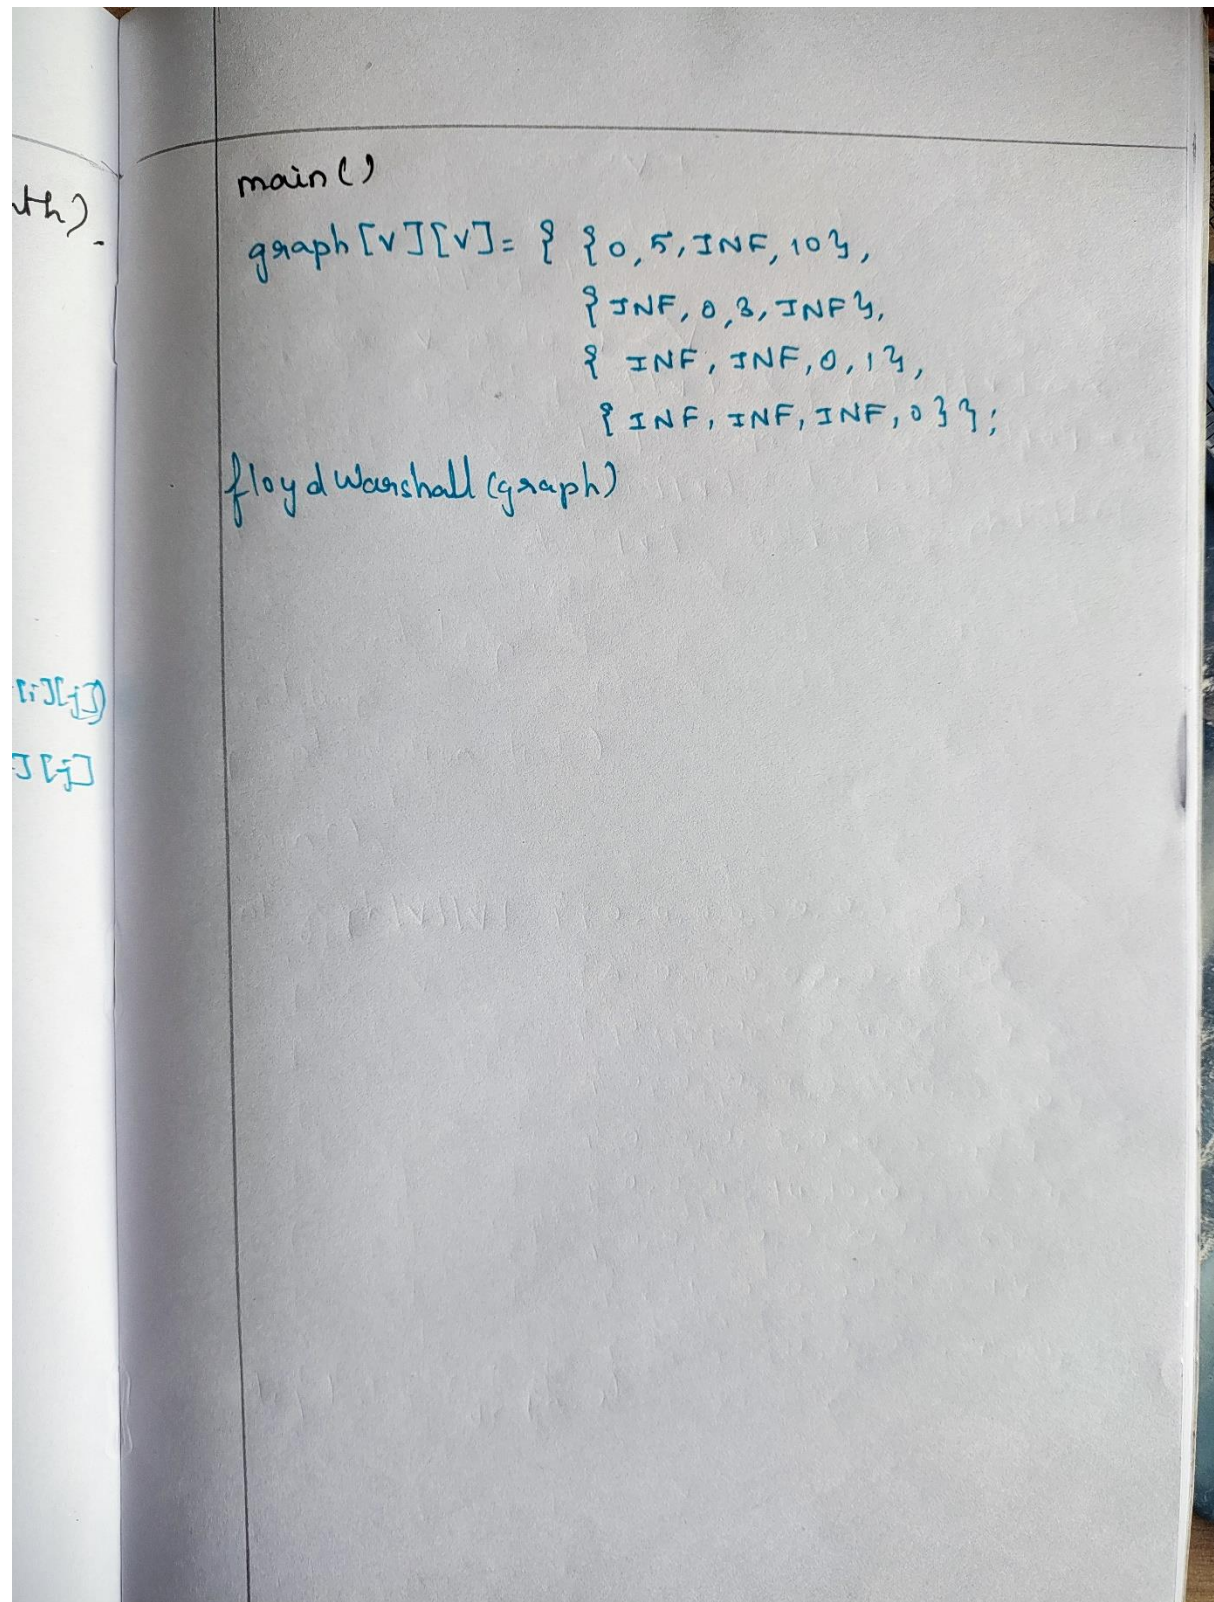 main()
graph[v][v]= { {0,5,INF,10},
{INF,0,3,INF},
{ INF, INF,0,1},
{INF, INF, INF,0}};
floydWarshall(graph)
[i][j])
][j]